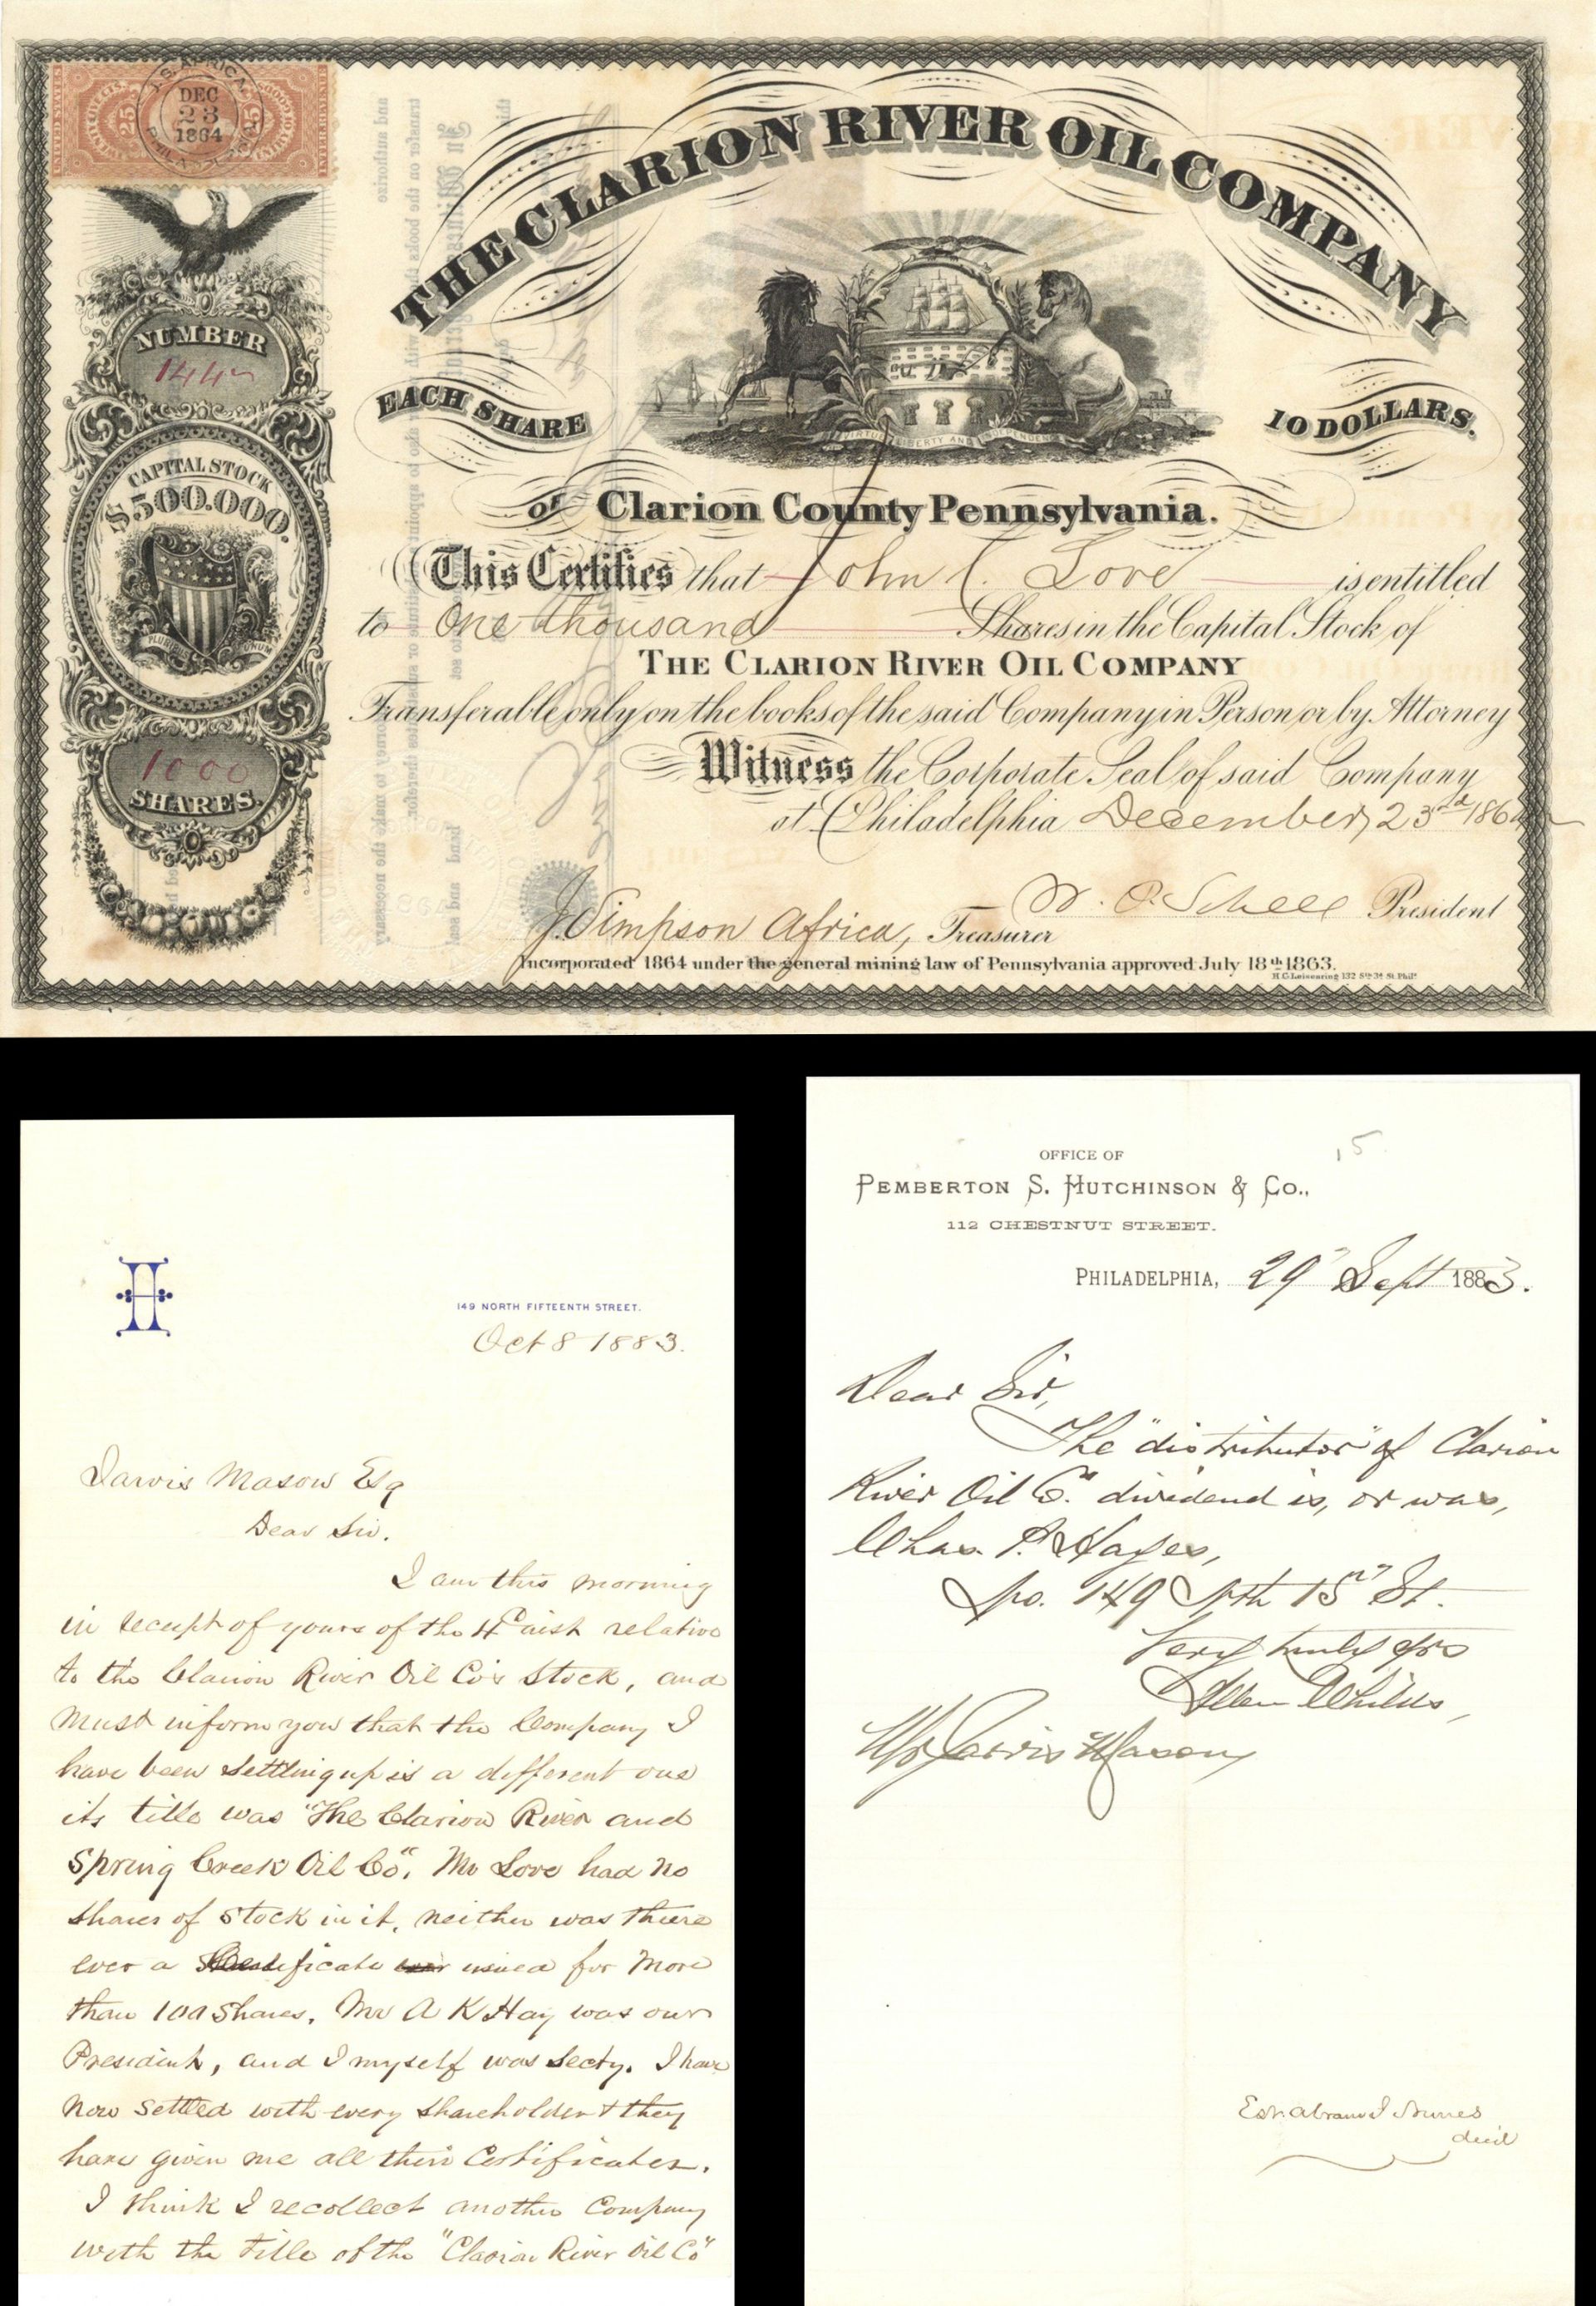 J. S. AFRICA.
DEC
23
1864
PHILADELPHIA
UNITED STATES
25
25
THE CLARION RIVER OIL COMPANY
NUMBER
144
EACH SHARE
10 DOLLARS.
VIRTUE LIBERTY AND INDEPENDENCE
CAPITAL STOCK
$500.000.
of Clarion County Pennsylvania.
This Certifies that John C. Love is entitled
to One thousand Shares in the Capital Stock of
PLURIBUS UNUM
THE CLARION RIVER OIL COMPANY
Transferable only on the books of the said Company in Person or by Attorney
1000
SHARES.
Witness the Corporate Seal of said Company
at Philadelphia December 23rd 1864
J Simpson Africa, Treasurer
W. P. Schell President
Incorporated 1864 under the general mining law of Pennsylvania approved July 18th 1863.
H G Leisenring 132 Sth 3d St. Phila
H
149 NORTH FIFTEENTH STREET.
Oct 8 1883.
Jarvis Mason Esq
Dear Sir.
I am this morning
in receipt of yours of the 4th inst relative
to the Clarion River Oil Co's Stock, and
must inform you that the Company I
have been settling up is a different one
its title was "The Clarion River and
Spring Creek Oil Co". Mr Love had no
shares of stock in it, neither was there
ever a Certificate issued for more
than 100 Shares. Mr A K Hay was our
President, and I myself was Secty. I have
now settled with every shareholder & they
have given me all their Certificates.
I think I recollect another Company
with the title of the "Clarion River Oil Co"
15
OFFICE OF
PEMBERTON S. HUTCHINSON & CO.,
112 CHESTNUT STREET.
PHILADELPHIA, 29" Sept 1883.
Dear Sir,
The "distributor" of Clarion
River Oil Co." dividend is, or was,
Chas. P. Hayes,
No. 149 Nth 15" St.
Very truly yrs
Allen Childs,
Mr Jarvis Mason
Est. Abram
decd